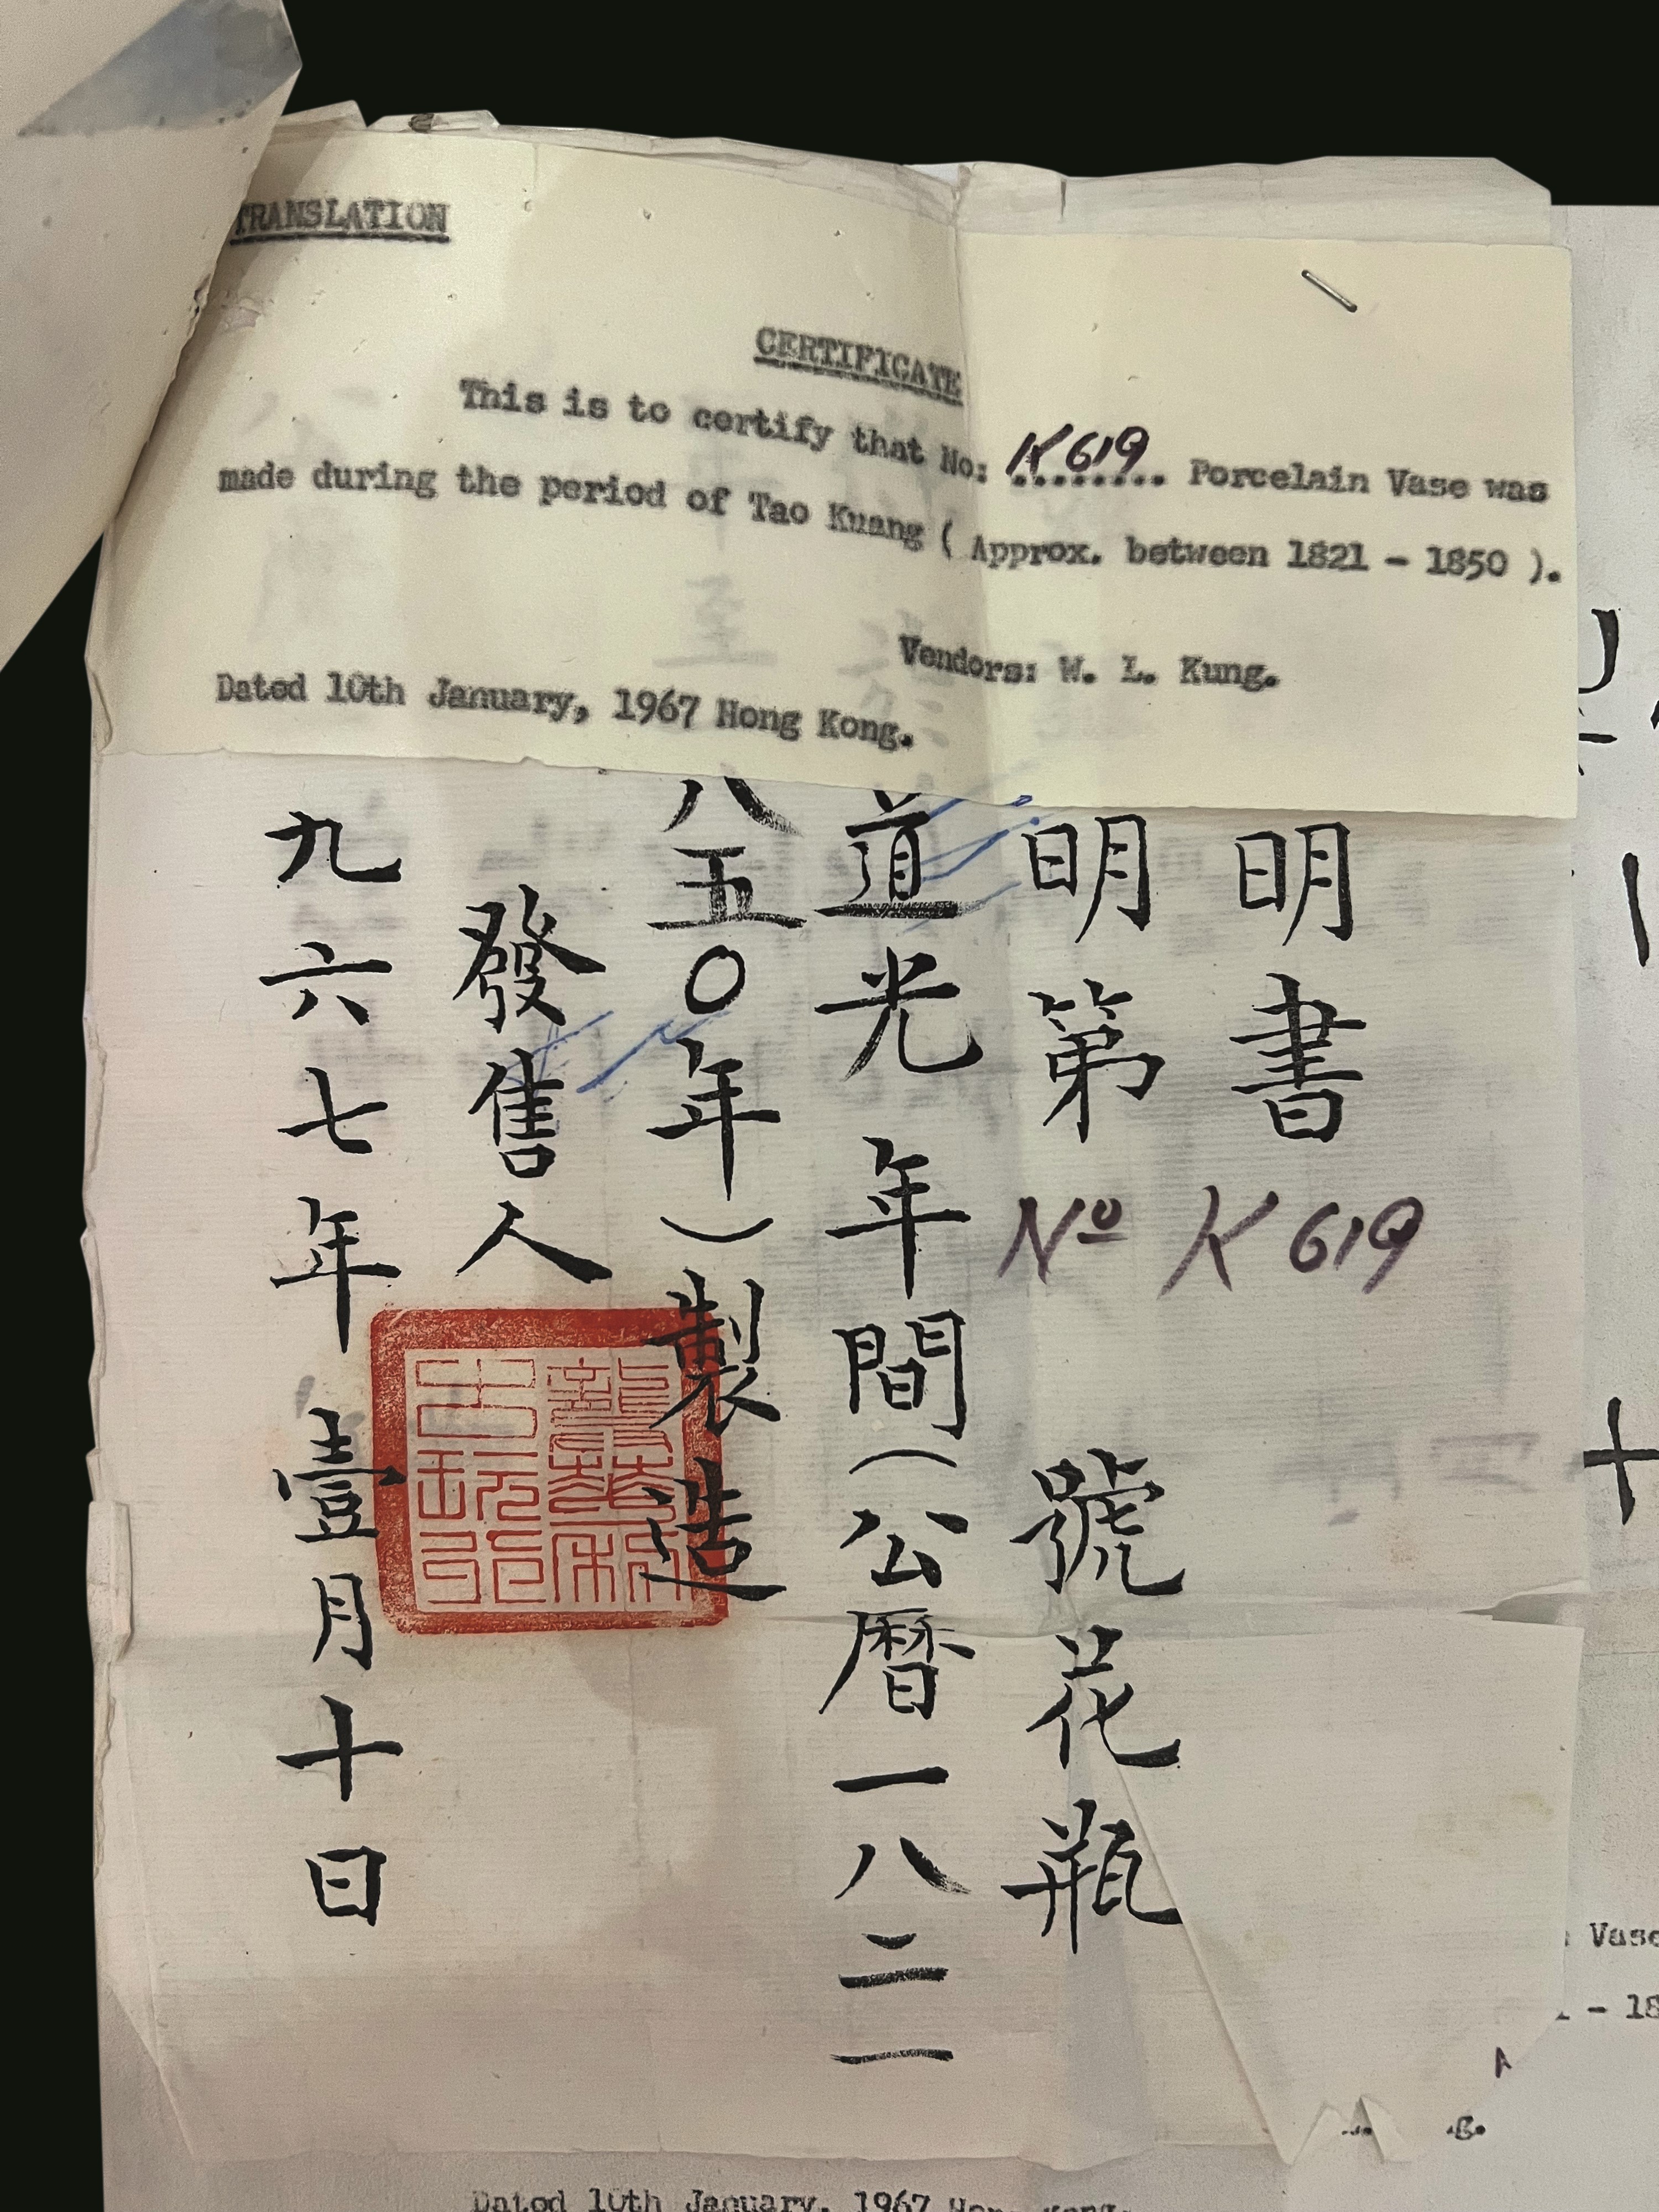 TRANSLATION
CERTIFICATE
This is to certify that No: K619 Porcelain Vase was
made during the period of Tao Kuang ( Approx. between 1821 - 1850 ).
Vendors: W. L. Kung.
Dated 10th January, 1967 Hong Kong.
明書
明第 Nº K619 號花瓶
道光年間(公暦一八二一
八五〇年)製造
發售人
古玩行
九六七年壹月十日
十
Vase
- 18
Dated 10th January, 1967